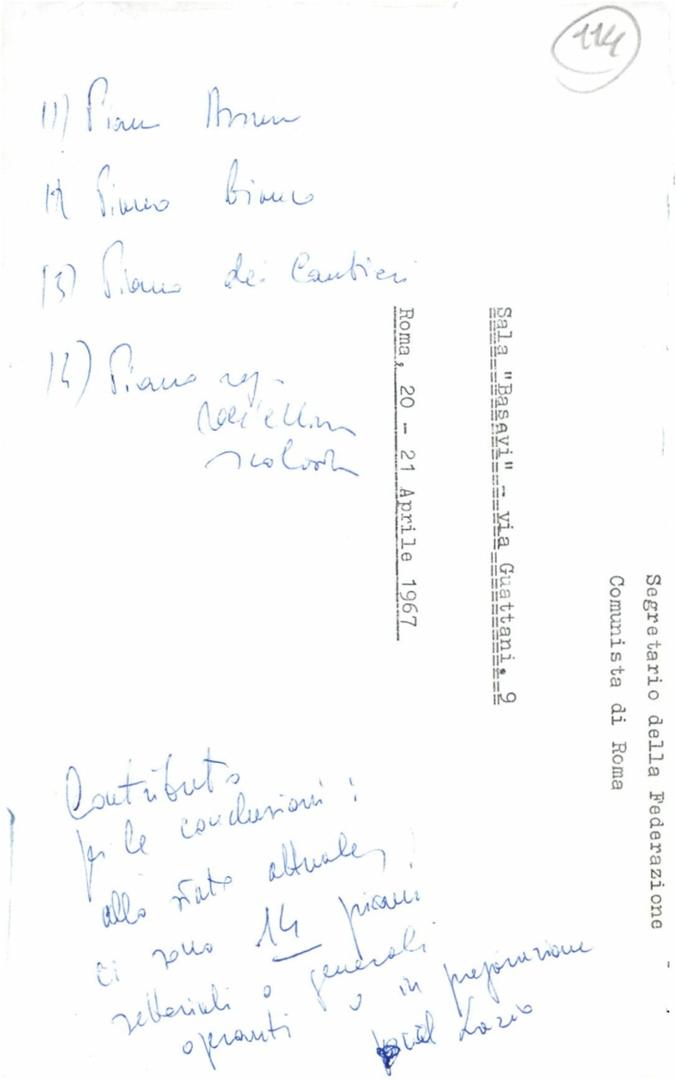 114
11) Piano
12) Piano bianco
13) Piano dei Cantieri
14) Piano reg.
dell'edilizia
scolastica
Roma, 20 - 21 Aprile 1967
Sala "Basevi" - via Guattani, 9
Segretario della Federazione
Comunista di Roma
Contributo
per le conclusioni:
allo stato attuale,
ci sono 14 piani
settoriali o generali
operanti o in preparazione
Lazio